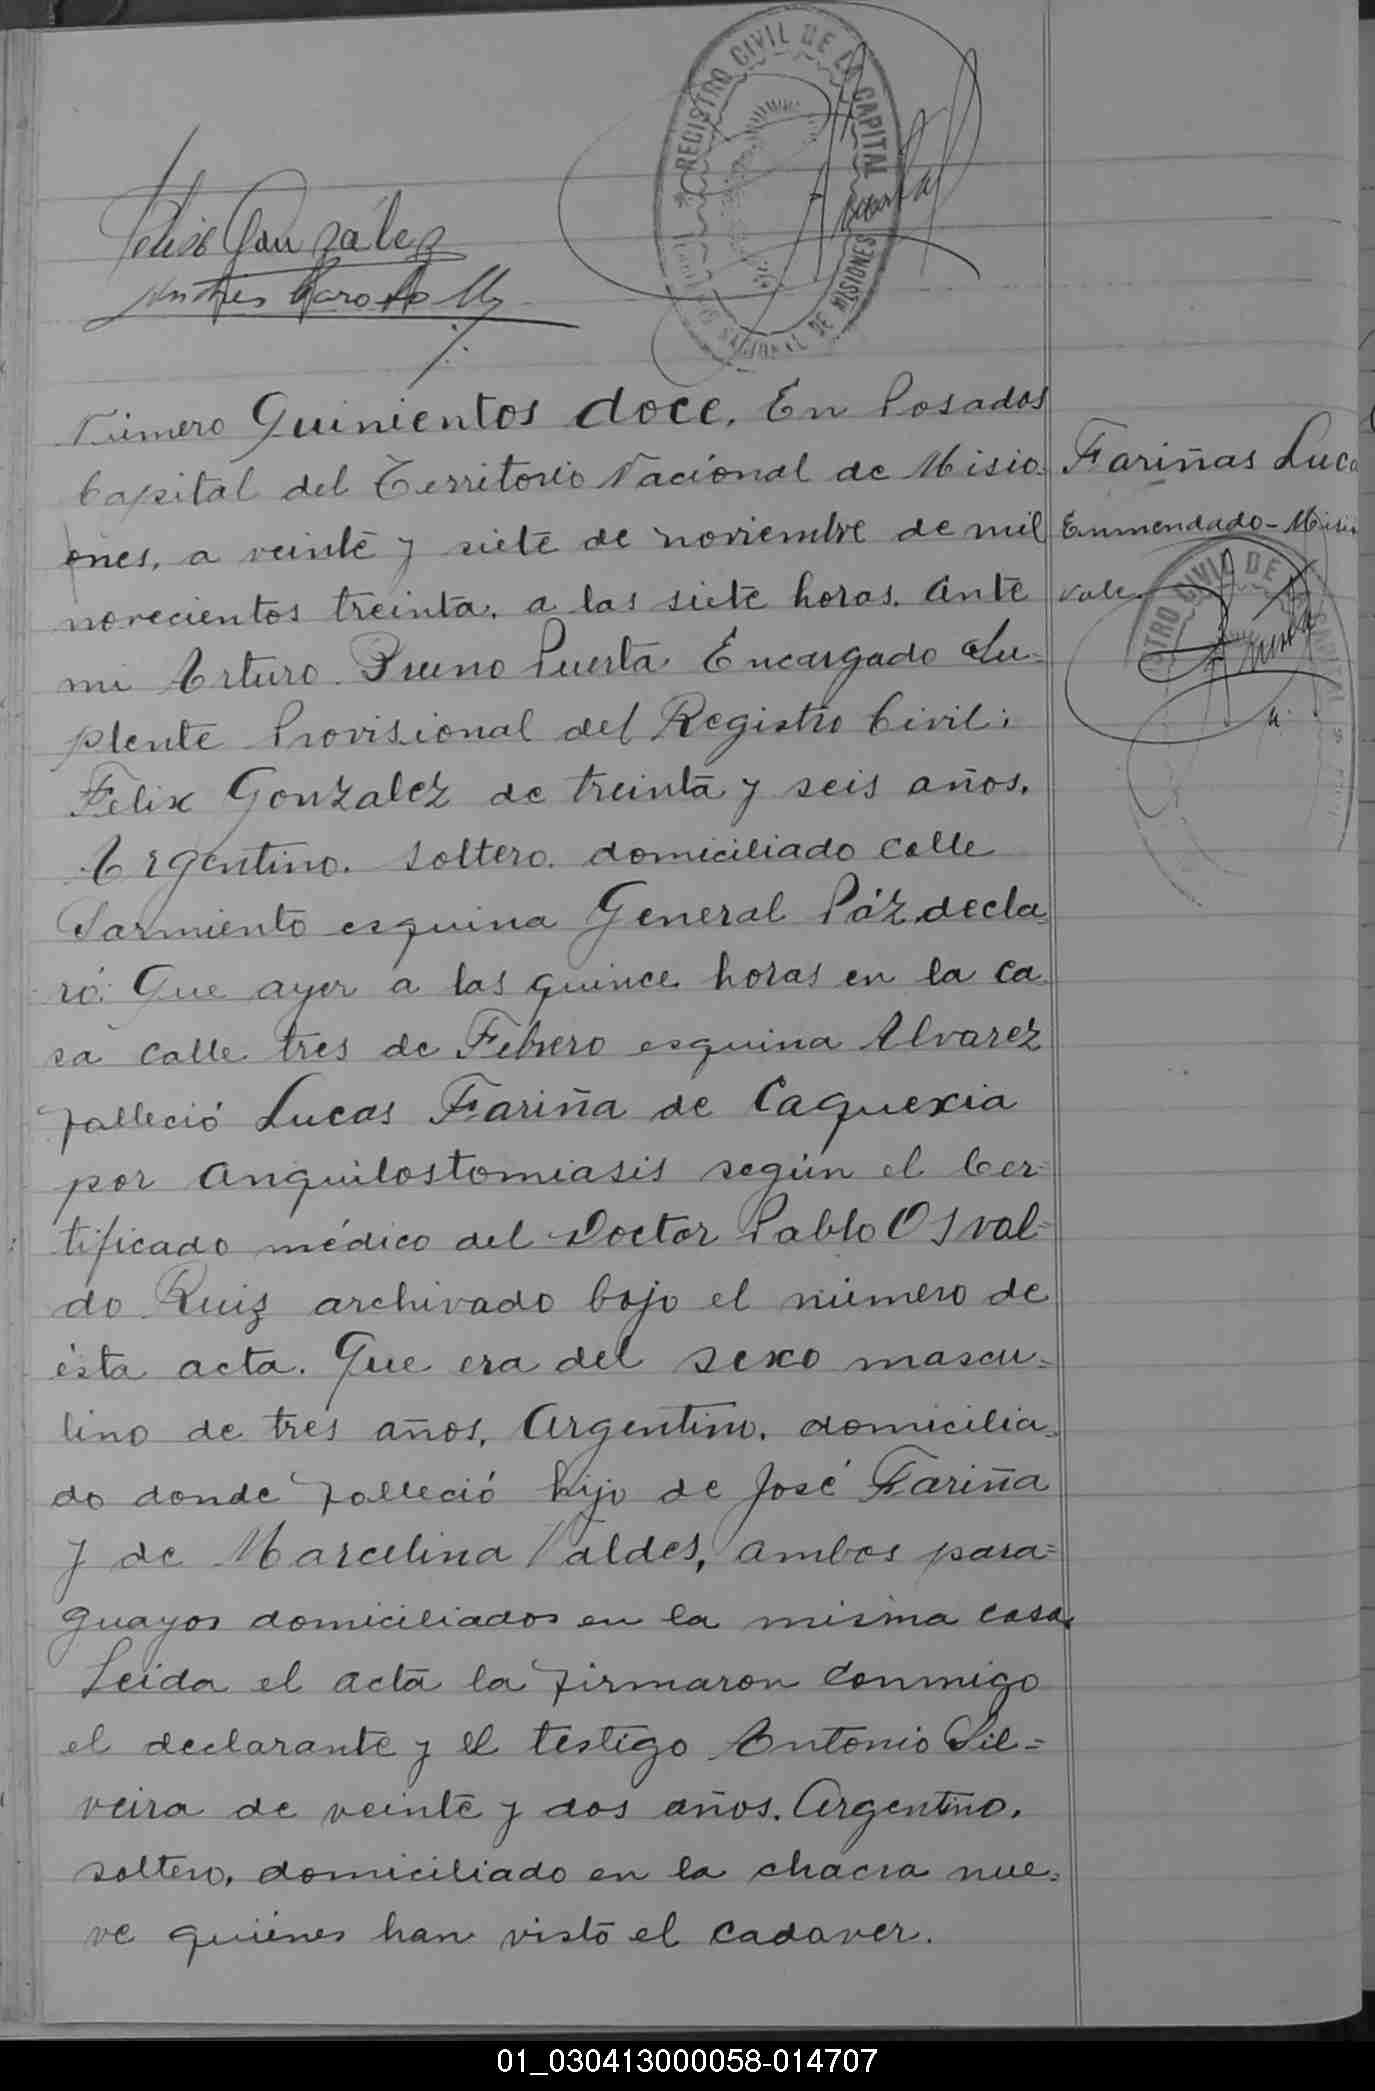 REGISTRO CIVIL DE LA CAPITAL
NACIONAL DE MISIONES
Felix González
Número Quinientos doce. En Posadas
Capital del Territorio Nacional de Misio-
ones, a veinte y siete de noviembre de mil
novecientos treinta, a las siete horas. Ante
mi Arturo Bruno Puerta Encargado Su-
plente Provisional del Registro Civil:
Felix Gonzalez de treinta y seis años.
Argentino. soltero. domiciliado calle
Sarmiento esquina General Páz decla
ró: Que ayer a las quince horas en la ca
sa calle tres de Febrero esquina Alvarez
falleció Lucas Fariña de Caquexia
por anquilostomiasis según el Cer-
tificado médico del Doctor Pablo Osval-
do Ruiz archivado bajo el número de
ésta acta. Que era del sexo mascu-
lino de tres años, Argentino. domicilia-
do donde falleció hijo de José Fariña
y de Marcelina Valdes, ambos para-
guayos domiciliados en la misma casa.
Leida el acta la firmaron conmigo
el declarante y el testigo Antonio Sil-
veira de veinte y dos años. Argentino.
soltero, domiciliado en la chacra nue-
ve quiénes han visto el cadaver.
Fariñas Luca
Enmendado - Misio
Vale.
STRO CIVIL DE CAPITAL
01_030413000058-014707